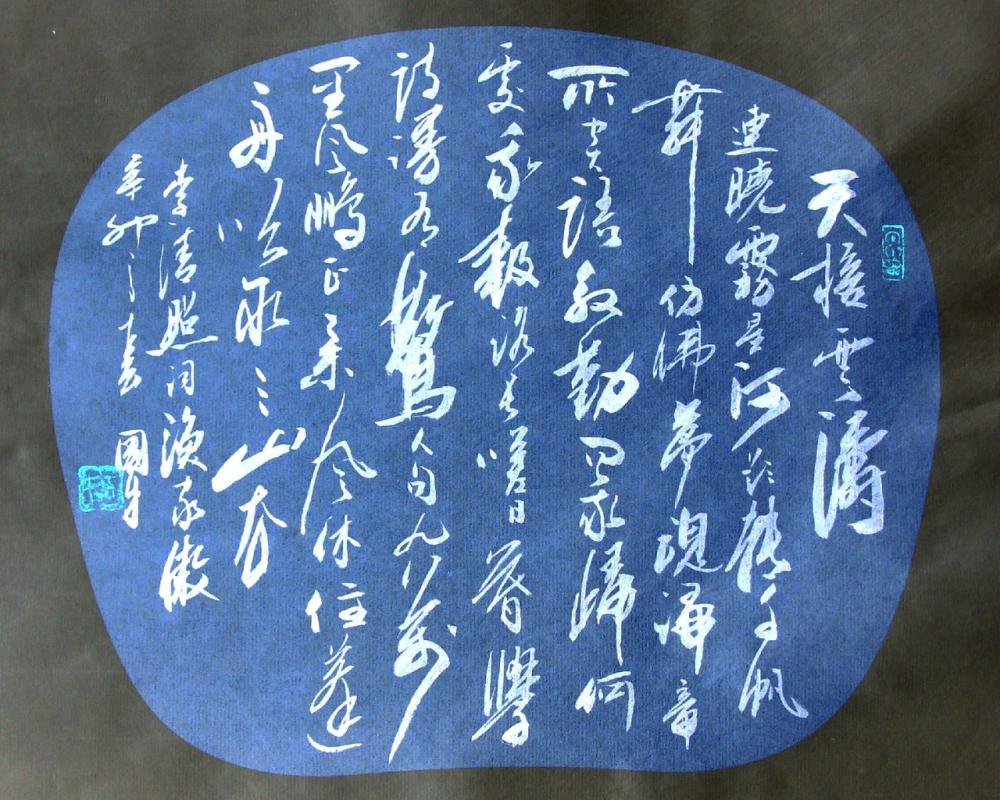 天接雲濤
連曉霧星河欲轉千帆
舞仿佛夢魂歸帝
所聞天語殷勤問我歸何
處我報路長嗟日暮學
詩謾有驚人句九萬
里風鵬正舉風休住蓬
舟吹取三山去
李清照詞漁家傲
辛卯之春國